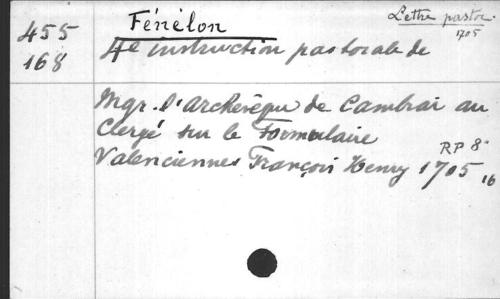 Fénélon
Lettre pastor.
1705
455
168
4e instruction pastorale de
Mgr. l'Archevêque de Cambrai au
Clergé sur le Formulaire
RP 8°
Valenciennes François Henry 1705
16